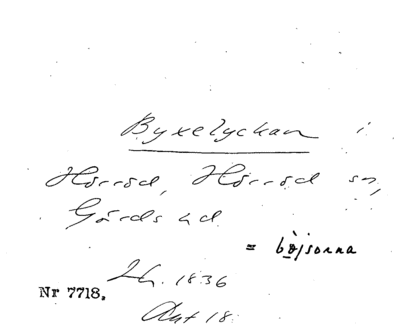 Byxelyckan i
Hörröd, Hörröd sn,
Gärds hd
= bo̲jsonna
Nr 7718.
Lh. 1836
Akt 18.